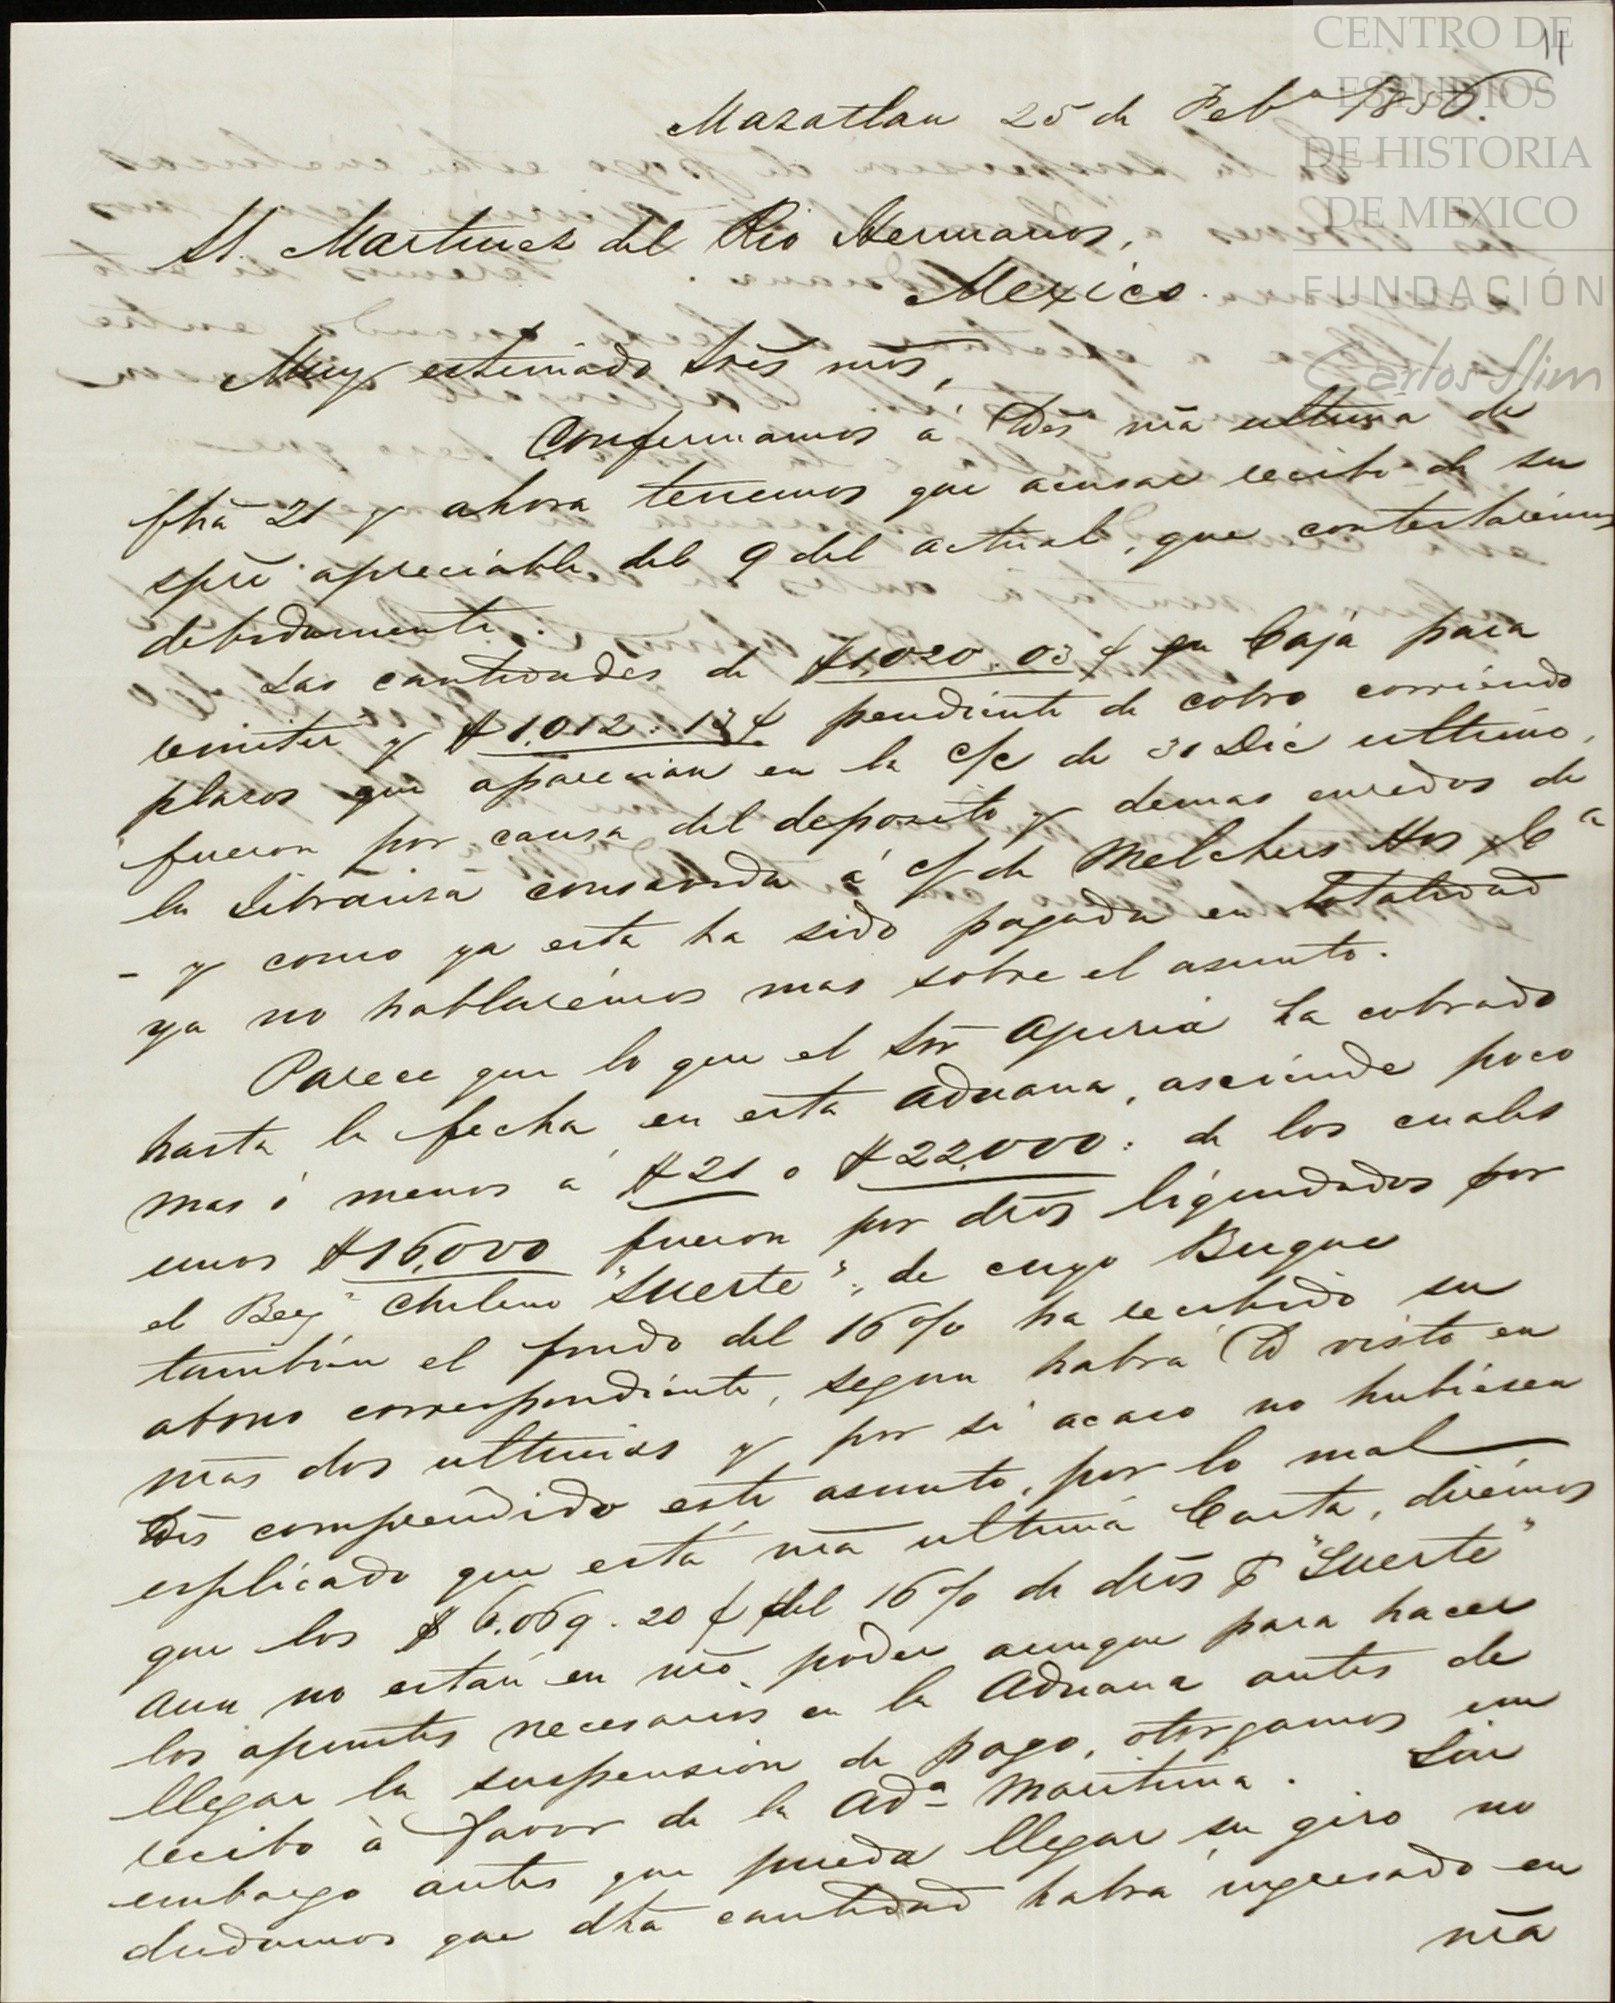 CENTRO DE
ESTUDIOS
DE HISTORIA
DE MEXICO
FUNDACIÓN
Carlos Slim
11
Mazatlan 25 de Feb.º
Sŝ. Martinez del Rio Hermanos,
Mexico.
Muy estimados Srēs nr̃os,
Confirmamos á Uds nr̃a ultima de
fhã 21 y ahora tenemos que acusar recibo de su
apreciable del 9 del actual, que contestarémos
debidamente.
Las cantidades de $1,020.03 ¢ en Caja para
remitir y $1,012.13 ¢ pendiente de cobro corriendo
plazos que aparecian en la c/c de 31 Dic ultimo,
fueron por causa del deposito y demas enredos de
la libranza consabida á c/ de Melchers Hos y Cª
- y como ya esta ha sido pagada en totalidad
ya no hablarémos mas sobre el asunto.
Parece que lo que el Sor Azuria ha cobrado
hasta la fecha en esta Aduana, asciende poco
mas ó menos á $21 o $22,000: de los cuales
unos $16,000 fueron por dr̃os liquidados por
el Berg.ⁿ Chileno "Suerte", de cuyo Buque
también el fondo del 16% ha recibido su
abono correspondiente, segun habrá Ud visto en
nr̃as dos ultimas y por si acaso no hubiesen
Uds comprendido este asunto, por lo mal
esplicado que está nr̃a ultima Carta, dirémos
que los $6.069.20 ¢ del 16% de dr̃os p "Suerte"
aun no están en nr̃o poder aunque para hacer
los apuntes necesarios en la Aduana antes de
llegar la suspension de pago, otorgamos un
recibo à favor de la Adª Maritima. Sin
embargo antes que pueda llegar su giro no
dudamos que dhã cantidad habrá ingresado en
nr̃a